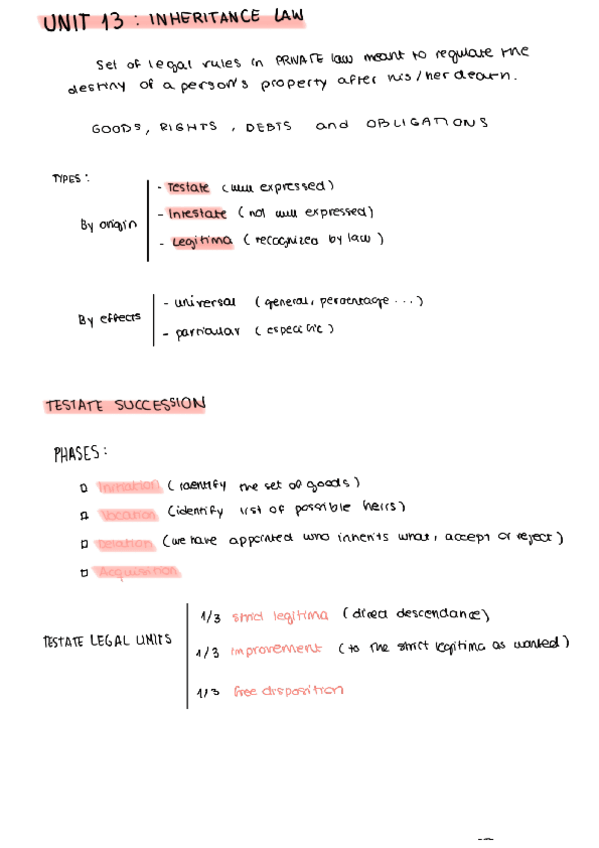 UNIT 13 : INHERITANCE LAW
Set of legal rules in PRIVATE law meant to regulate the
destiny of a person's property after his/her death.
GOODS, RIGHTS, DEBTS and OBLIGATIONS
TYPES:
By origin
- Testate (will expressed)
- Intestate (not will expressed)
- Legitima (recognized by law)
By effects
- universal (general, percentage...)
- particular (especific)
TESTATE SUCCESSION
PHASES:
(identify the set of goods)
Vocation (identify list of possible heirs)
Delation (we have appointed who inherits what, accept or reject)
Acquisition
TESTATE LEGAL LIMITS
1/3 strict legitima (direct descendance)
1/3 improvement (to the strict legitima as wanted)
1/3 free disposition